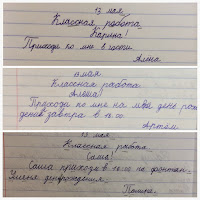 13 мая
Классная работа
Карина!
Приходи ко мне в гости.
Алёна
13 мая
Классная работа
Алёша!
Приходи ко мне на мой день рож
дения завтра в 12:00
Артём.
13 мая
Классная работа
Саша!
Саша приходи в 10.00 на фонтан
Уменя деньрождения.
Полина.